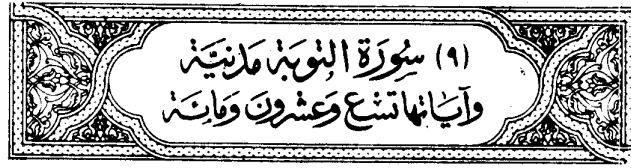 (٩) سُورَة التوبَة مَدنيَّة
وآياتها تسْع وَعشرُونَ وَمائة